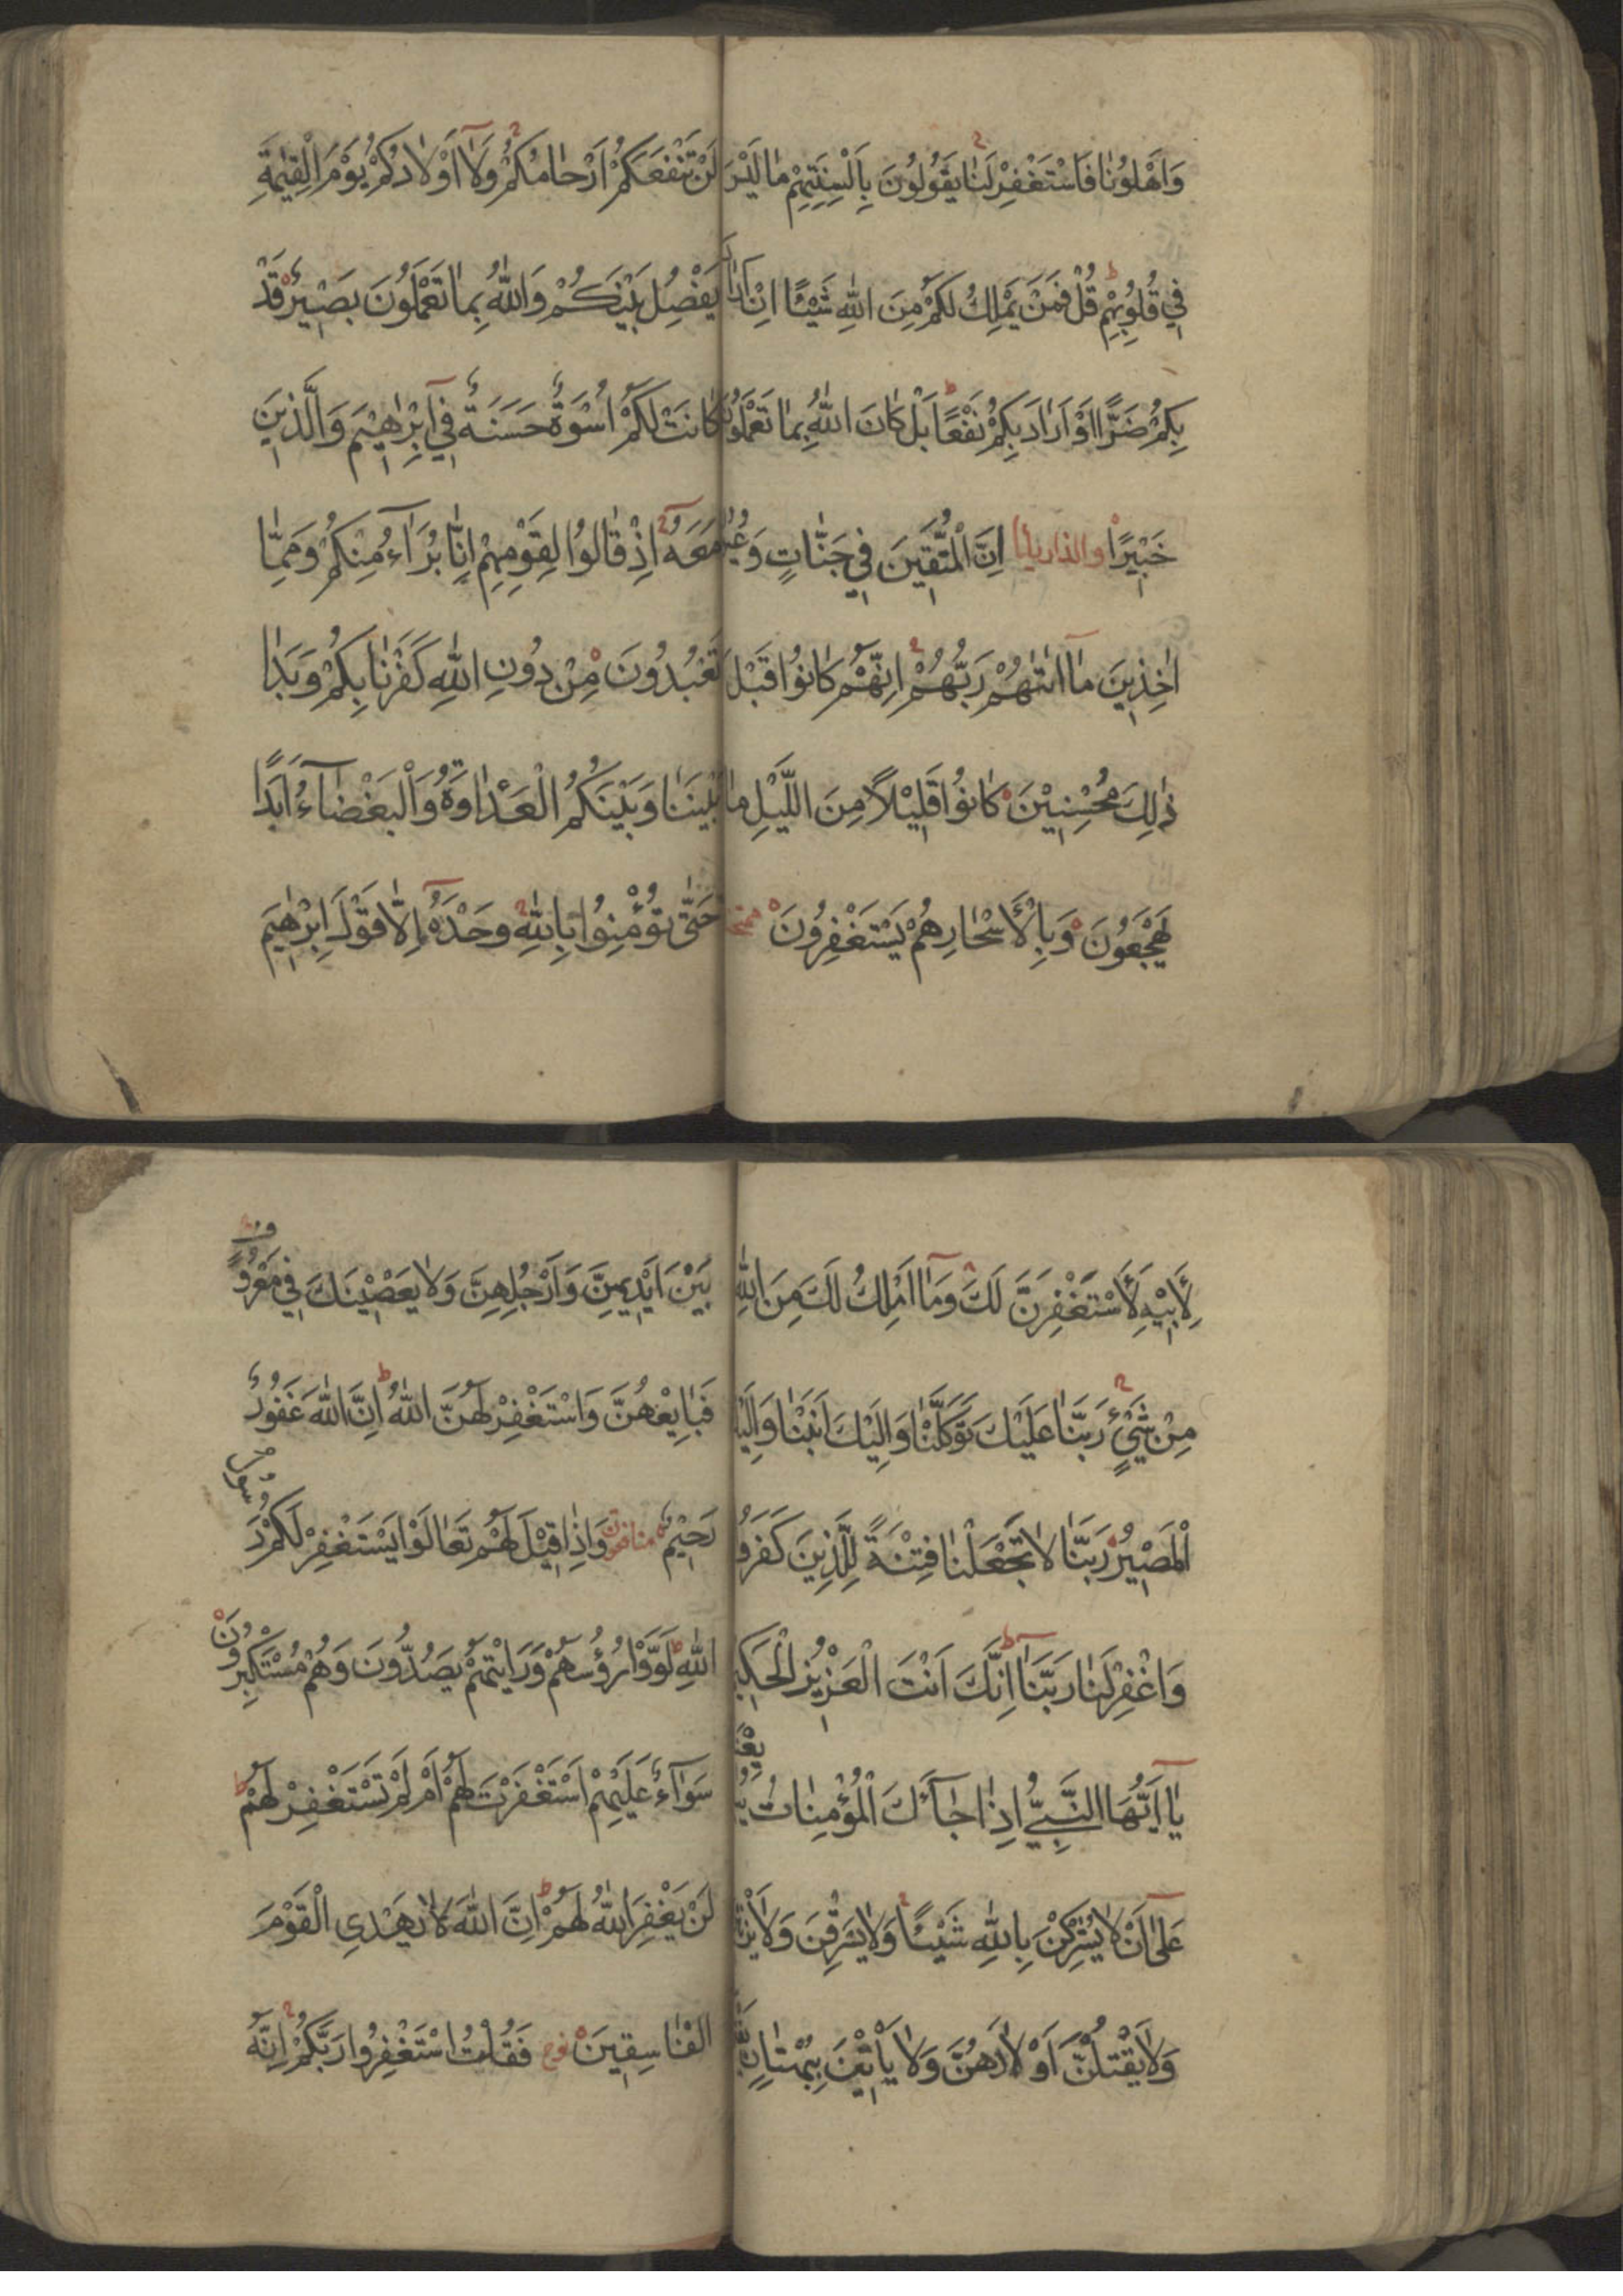 وَاَهْلُونَا فَاسْتَغْفِرْ لَنَا يَقُولُونَ بِاَلْسِنَتِهِمْ مَا لَيْسَ
فِي قُلُوبِهِمْ قُلْ فَمَنْ يَمْلِكُ لَكُمْ مِنَ اللّٰهِ شَيْئًا اِنْ اَرَادَ
بِكُمْ ضَرًّا اَوْ اَرَادَ بِكُمْ نَفْعًا بَلْ كَانَ اللّٰهُ بِمَا تَعْمَلُونَ
خَبِيْرًا والذاريات اِنَّ الْمُتَّقِيَن فِي جَنَّاتٍ وَعُيُونٍ
اٰخِذِينَ مَا اٰتٰيهُمْ رَبُّهُمْ اِنَّهُمْ كَانُوا قَبْلَ
ذٰلِكَ مُحْسِنِيْنَ كَانُوا قَلِيْلًا مِنَ اللَّيْلِ مَا
يَهْجَعُونَ وَبِالْاَسْحَارِ هُمْ يَسْتَغْفِرُونَ ممتحنه
لَنْ تَنْفَعَكُمْ اَرْحَامُكُمْ وَلَا اَوْلَادُكُمْ يَوْمَ الْقِيٰمَةِ
يَفْصِلُ بَيْنَكُمْ وَاللّٰهُ بِمَا تَعْمَلُونَ بَصِيْرٌ قَدْ
كَانَتْ لَكُمْ اُسْوَةٌ حَسَنَةٌ فِي اِبْرٰهِيْمَ وَالَّذِينَ
مَعَهُ اِذْ قَالُوا لِقَوْمِهِمْ اِنَّا بُرَآءُ مِنْكُمْ وَمِمَّا
تَعْبُدُونَ مِنْ دُونِ اللّٰهِ كَفَرْنَا بِكُمْ وَبَدَا
بَيْنَنَا وَبَيْنَكُمُ الْعَدَاوَةُ وَالْبَغْضَآءُ اَبَدًا
حَتّٰى تُؤْمِنُوا بِاللّٰهِ وَحْدَهُ اِلَّا قَوْلَ اِبْرٰهِيمَ
لِاَبِيْهِ لَاَسْتَغْفِرَنَّ لَكَ وَمَا اَمْلِكُ لَكَ مِنَ اللّٰهِ
مِنْ شَيْءٍ رَبَّنَا عَلَيْكَ تَوَكَّلْنَا وَاِلَيْكَ اَنَبْنَا وَاِلَيْكَ
الْمَصِيْرُ رَبَّنَا لَا تَجْعَلْنَا فِتْنَةً لِلَّذِينَ كَفَرُوا
وَاغْفِرْ لَنَا رَبَّنَا اِنَّكَ اَنْتَ الْعَزِيْزُ الْحَكِيمُ
يَا اَيُّهَا النَّبِيُّ اِذَا جَآءَكَ الْمُؤْمِنَاتُ يُبَايِعْنَكَ
عَلٰى اَنْ لَا يُشْرِكْنَ بِاللّٰهِ شَيْئًا وَلَا يَسْرِقْنَ وَلَا يَزْنِينَ
وَلَا يَقْتُلْنَ اَوْلَادَهُنَّ وَلَا يَأْتِيْنَ بِبُهْتَانٍ يَفْتَرِينَهُ
بَيْنَ اَيْدِيهِنَّ وَاَرْجُلِهِنَّ وَلَا يَعْصِيْنَكَ فِي مَعْرُوفٍ
فَبَايِعْهُنَّ وَاسْتَغْفِرْ لَهُنَّ اللّٰهَ اِنَّ اللّٰهَ غَفُورٌ
رَحِيْمٌ منافقون وَاِذَا قِيْلَ لَهُمْ تَعَالَوْا يَسْتَغْفِرْ لَكُمْ رَسُولُ
اللّٰهِ لَوَّوْا رُؤُسَهُمْ وَرَاَيْتَهُمْ يَصُدُّونَ وَهُمْ مُسْتَكْبِرُونَ
سَوَآءٌ عَلَيْهِمْ اَسْتَغْفَرْتَ لَهُمْ اَمْ لَمْ تَسْتَغْفِرْ لَهُمْ
لَنْ يَغْفِرَ اللّٰهُ لَهُمْ اِنَّ اللّٰهَ لَا يَهْدِي الْقَوْمَ
الْفَاسِقِينَ نوح فَقُلْتُ اسْتَغْفِرُوا رَبَّكُمْ اِنَّهُ